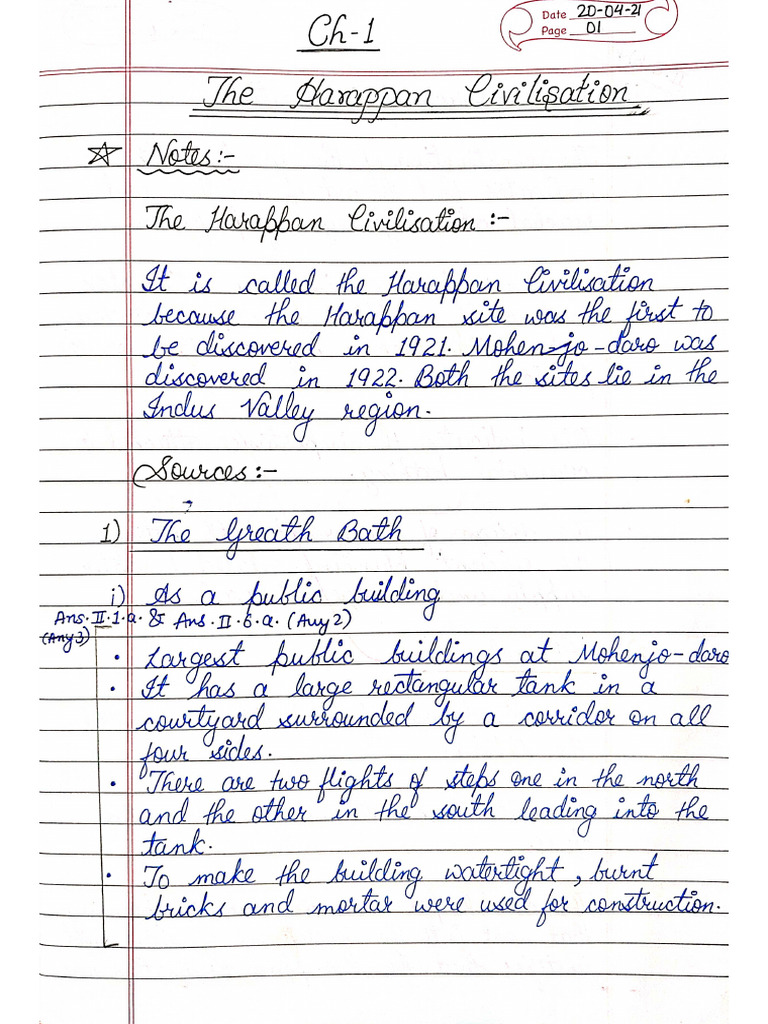 Ch-1
Date 20-04-21
Page 01
The Harappan Civilisation
☆ Notes:-
The Harappan Civilisation :-
It is called the Harappan Civilisation
because the Harappan site was the first to
be discovered in 1921. Mohen-jo-daro was
discovered in 1922. Both the sites lie in the
Indus Valley region.
Sources:-
1) The Greath Bath
i) As a public building
Ans.II.1.a. & Ans.II.6.a. (Any 2)
(Any 3)
• Largest public buildings at Mohenjo-daro
• It has a large rectangular tank in a
courtyard surrounded by a corridor on all
four sides.
• There are two flights of steps one in the north
and the other in the south leading into the
tank.
• To make the building watertight, burnt
bricks and mortar were used for construction.